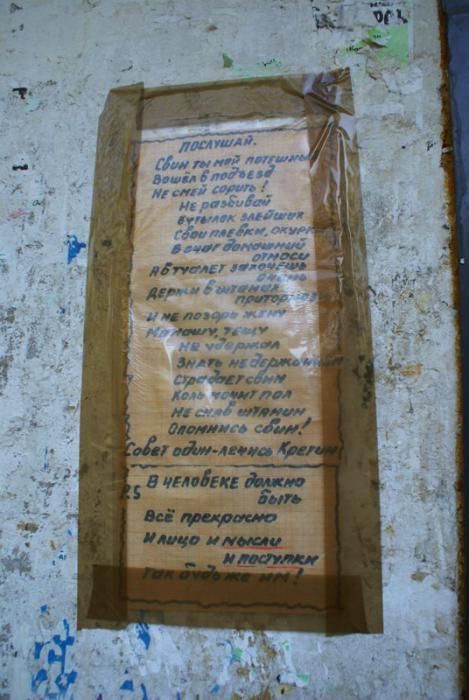 ПОСЛУШАЙ.
Свин ты мой потешный
Вошёл в подъезд
Не смей сорить!
Не разбивай
Бутылок злейших
Свои плевки, окурки
В очаг домашний
относи
А в туалет захочешь
очень
Держи в штанах
притормози
И не позорь жену
Мамашу, тёщу
Не удержал
Знать недержаньем
Страдает свин
Коль мочит пол
Не сняв штанин
Опомнись свин!
Совет один-лечись Кретин!
P.S В ЧЕЛОВЕКЕ должно
быть
Всё прекрасно
И лицо и мысли
и поступки
Так будь же им!